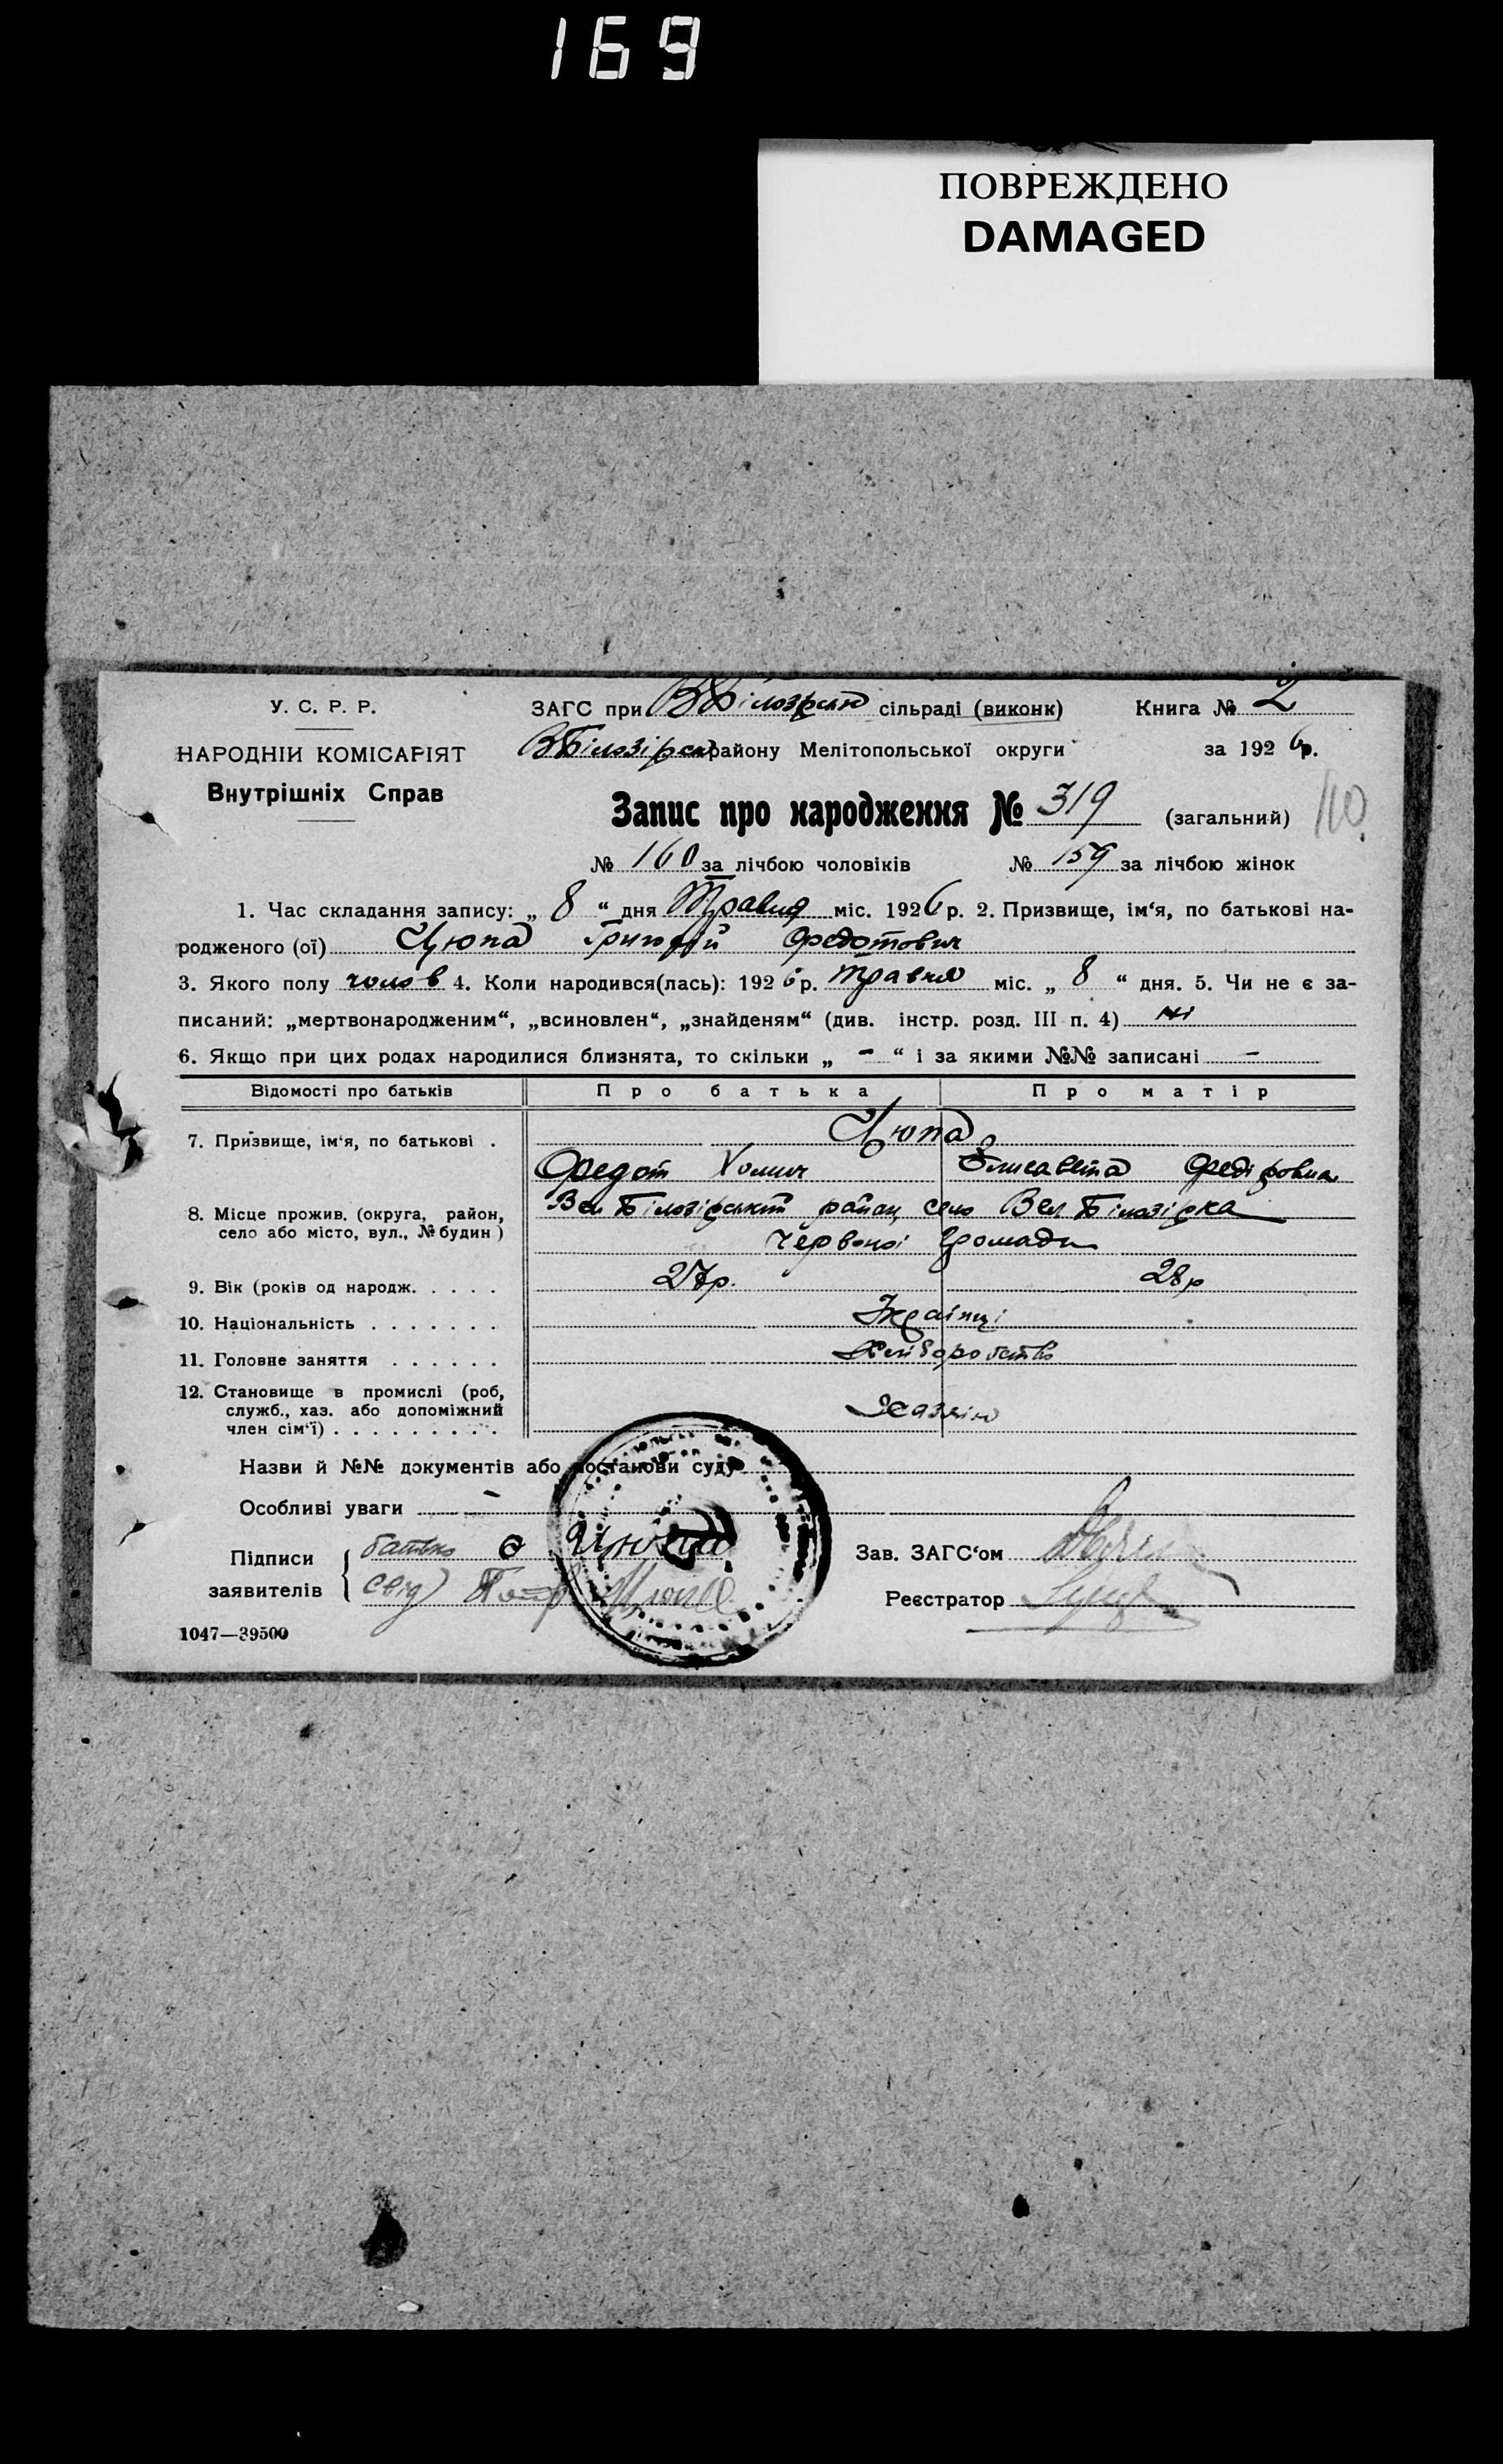 169
ПОВРЕЖДЕНО
DAMAGED
У. С. Р. Р.
НАРОДНІЙ КОМІСАРІЯТ
Внутрішніх Справ
ЗАГС при сільраді (виконк) Книга № 2
району Мелітопольської округи за 1926р.
Запис про народження № 319 (загальний) 110
№ 160 за лічбою чоловіків № 159 за лічбою жінок
1. Час складання запису: „ 8 “ дня Травня міс. 1926 р. 2. Призвище, ім‘я, по батькові на-
родженого (ої) Цюпа Григорій Федотович
3. Якого полу чолов 4. Коли народився(лась): 1926 р. травня міс. „ 8 “ дня. 5. Чи не є за-
писаний: „мертвонародженим“, „всиновлен“, „знайденям“ (див. інстр. розд. III п. 4) ні
6. Якщо при цих родах народилися близнята, то скільки „ - “ і за якими №№ записані -
Відомості про батьків Про батька Про матір
7. Призвище, ім‘я, по батькові . Цюпа
Федот Хомич Елисавета
8. Місце прожив. (округа, район, село або місто, вул., № будин) Вел Білозірський район, село Вел Білозірка
Червоної Громади
9. Вік (років од народж. . . . . 27р. 28р
10. Національність . . . . . . . Українці
11. Головне заняття . . . . . . Хліборобство
12. Становище в промислі (роб, служб., хаз. або допоміжний член сім‘ї) . . . . . . . . .
Назви й №№ документів або постанови суду
Особливі уваги -
Підписи заявителів батько Цюпа
свід Цюпа
Зав. ЗАГС‘ом
Реєстратор
1047—39500